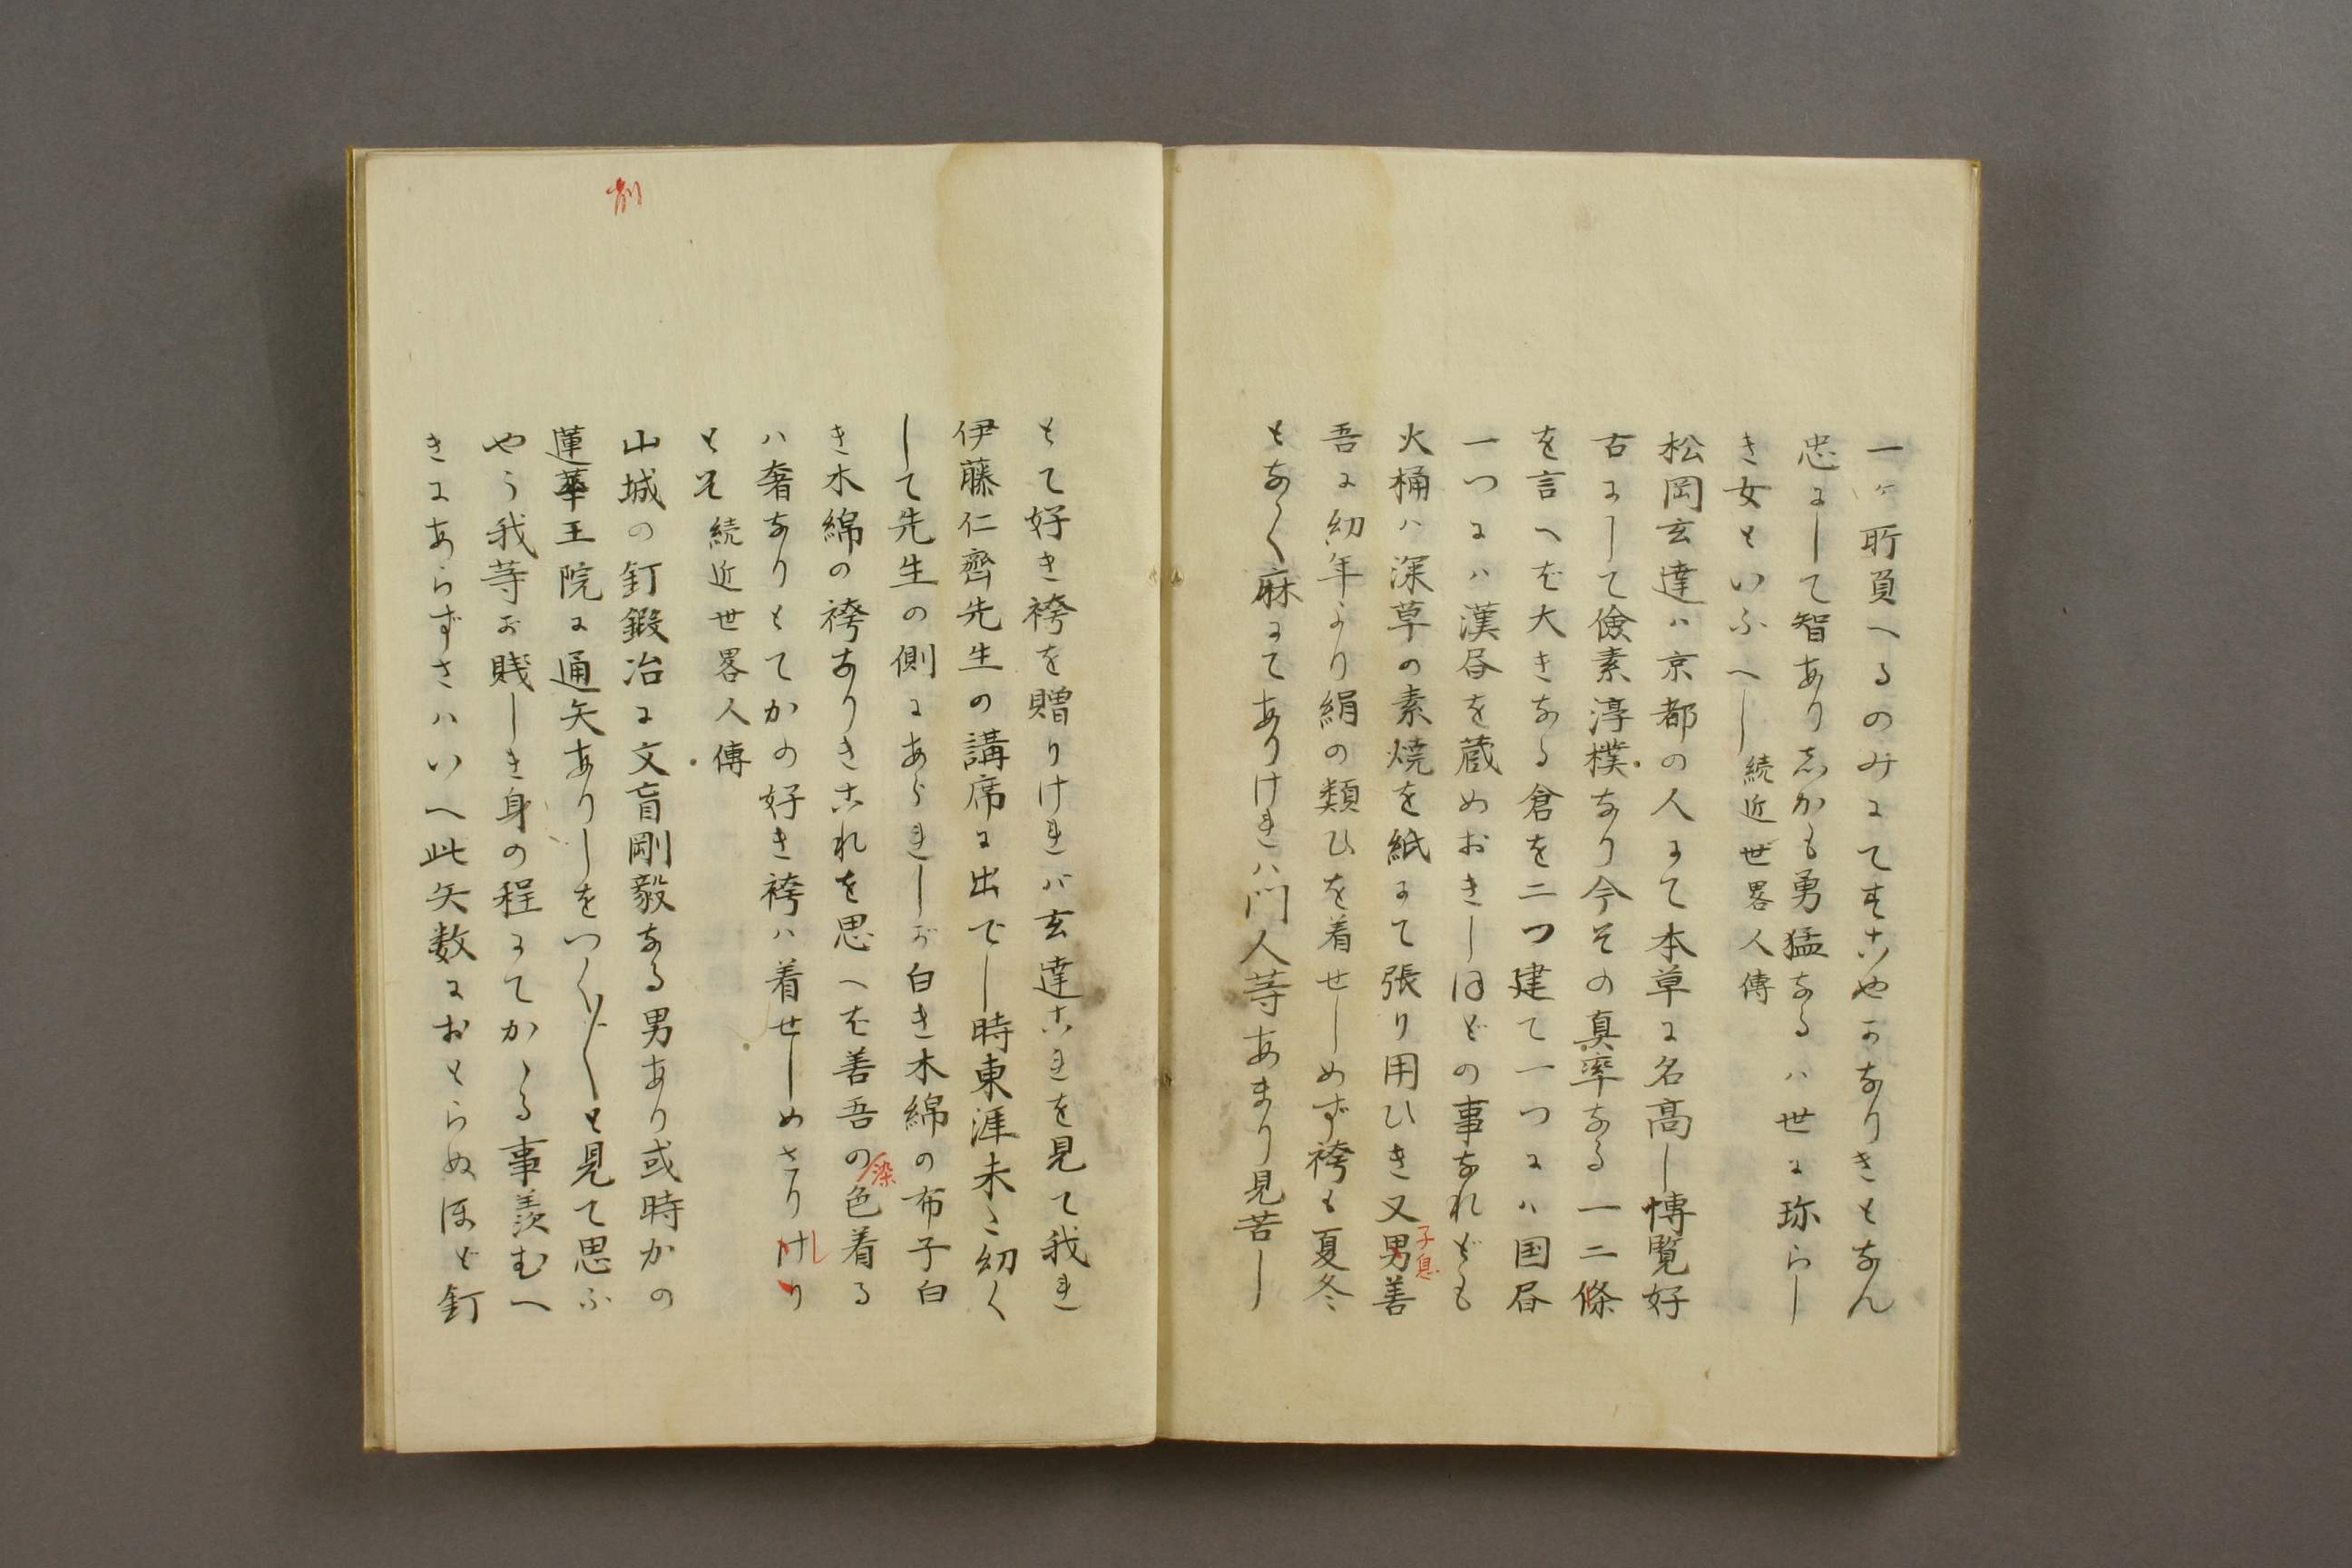 一ヶ所負へるのみにてすこやかなりきとなん
忠にして智ありしかも勇猛なるハ世に珎らし
き女といふへし 続近世畧人傳
松岡玄達ハ京都の人にて本草に名高し博覧好
古にして儉素淳樸なり今その真率なる一二條
を言へば大きなる倉を二つ建て一つにハ国昼
一つにハ漢昼を蔵めおきしほどの事なれども
火桶ハ深草の素焼を紙にて張り用ひき又男善
子息
吾に幼年より絹の類ひを着せしめず袴も夏冬
となく麻にてありけれハ門人等あまり見苦し
とて好き袴を贈りけれバ玄達これを見て我れ
伊藤仁齊先生の講席に出でし時東涯未〻幼く
して先生の側にあられしが白き木綿の布子白
き木綿の袴なりきこれを思へば善吾の色着る
染
ハ奢なりとてかの好き袴ハ着せしめさりけり
し
とそ 続近世畧人傳
削
山城の釘鍛冶に文盲剛毅なる男あり或時かの
蓮華王院に通矢ありしをつく〲と見て思ふ
やう我等が賎しき身の程にてかゝる事羨むへ
きにあらずさハいへ此矢数におとらぬほど釘